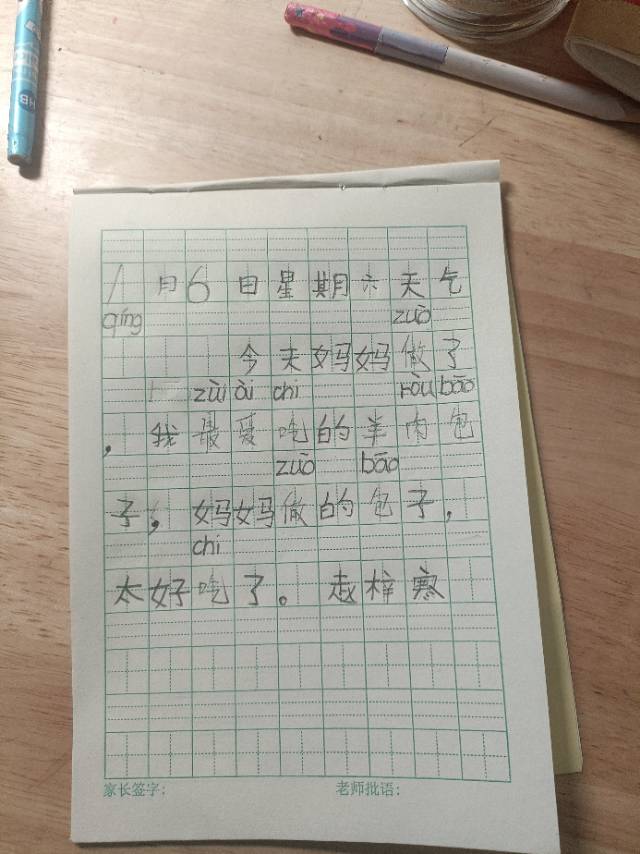 HB
1月6日星期六天气
qíng zuò
今天妈妈做了
zùi ài chi ròu bāo
，我最爱吃的羊肉包
zuò bāo
子，妈妈做的包子，
chi
太好吃了。赵梓寒
家长签字： 老师批语：